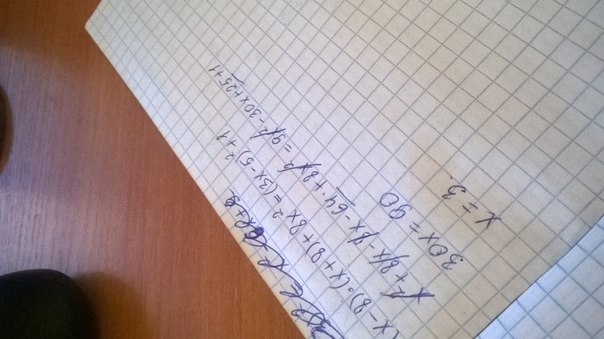 x - 8) · (x + 8) + 8x² = (3x - 5)² + 1
x² + 8x - 8x - 64 + 8x² = 9x² - 30x + 25 + 1
30x = 90
x = 3.